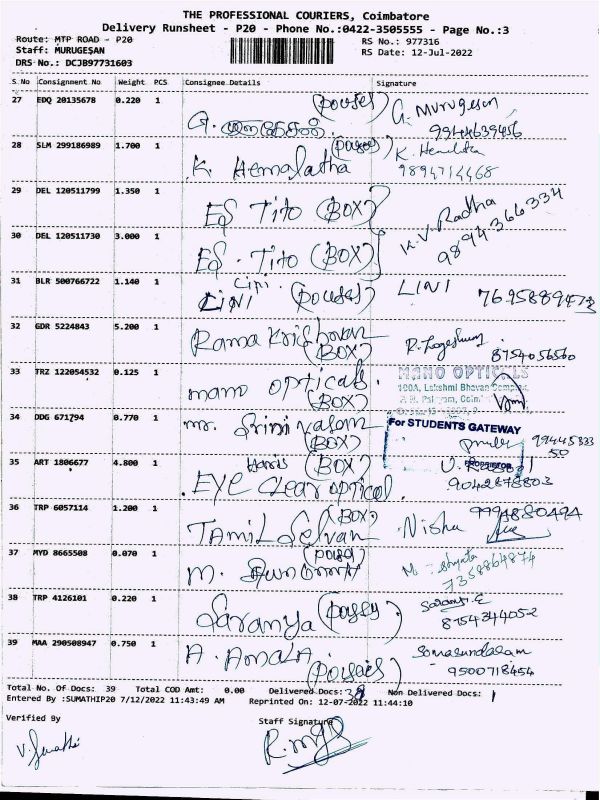 THE PROFESSIONAL COURIERS, Coimbatore
Delivery Runsheet - P20 - Phone No.:0422-3505555 - Page No.:3
Route: MTP ROAD - P20
RS No.: 977316
Staff: MURUGESAN
RS Date: 12-Jul-2022
DRS No.: DCJB97731603
S No Consignment No Weight PCS Consignee Details Signature
27 EDQ 20135678 0.220 1 G. Murugesan
28 SLM 299186989 1.700 1 K. Hemalatha
9894714468
29 DEL 120511799 1.350 1 Tito (BOX) K.V. Radha
9894366334
30 DEL 120511730 3.000 1 Tito (BOX)
31 BLR 500766722 1.140 1 LINI LINI
32 GDR 5224843 5.200 1 Rama Krishnan
(BOX) 8754056560
33 TRZ 122054532 0.125 1 mano opticals. MANO OPTICALS
(BOX) 100A, Lakshmi Bhavan Complex,
34 DDG 671794 0.770 1 mr. Srinivasan For STUDENTS GATEWAY
(BOX)
PROPRIETOR
35 ART 1806677 4.800 1 Haris (BOX)
EYE Clear optical. 9042878803
36 TRP 6057114 1.200 1 (BOX)
TAmil Selvan Nisha 9994880494
37 MYD 8665508 0.070 1 M.
7358864874
38 TRP 4126101 0.220 1 Saranya
8754344052
39 MAA 290508947 0.750 1 A. Amala Somasundaram
9500718454
Total No. Of Docs: 39 Total COD Amt: 0.00 Delivered Docs: 38 Non Delivered Docs: 1
Entered By :SUMATHIP20 7/12/2022 11:43:49 AM Reprinted On: 12-07-2022 11:44:10
Verified By Staff Signature